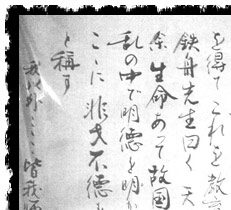 を得てこれを教
鉄舟先生曰く天
余生命あって故国
乱の中で明徳を明か
ここに非才不徳
と称す
皆我